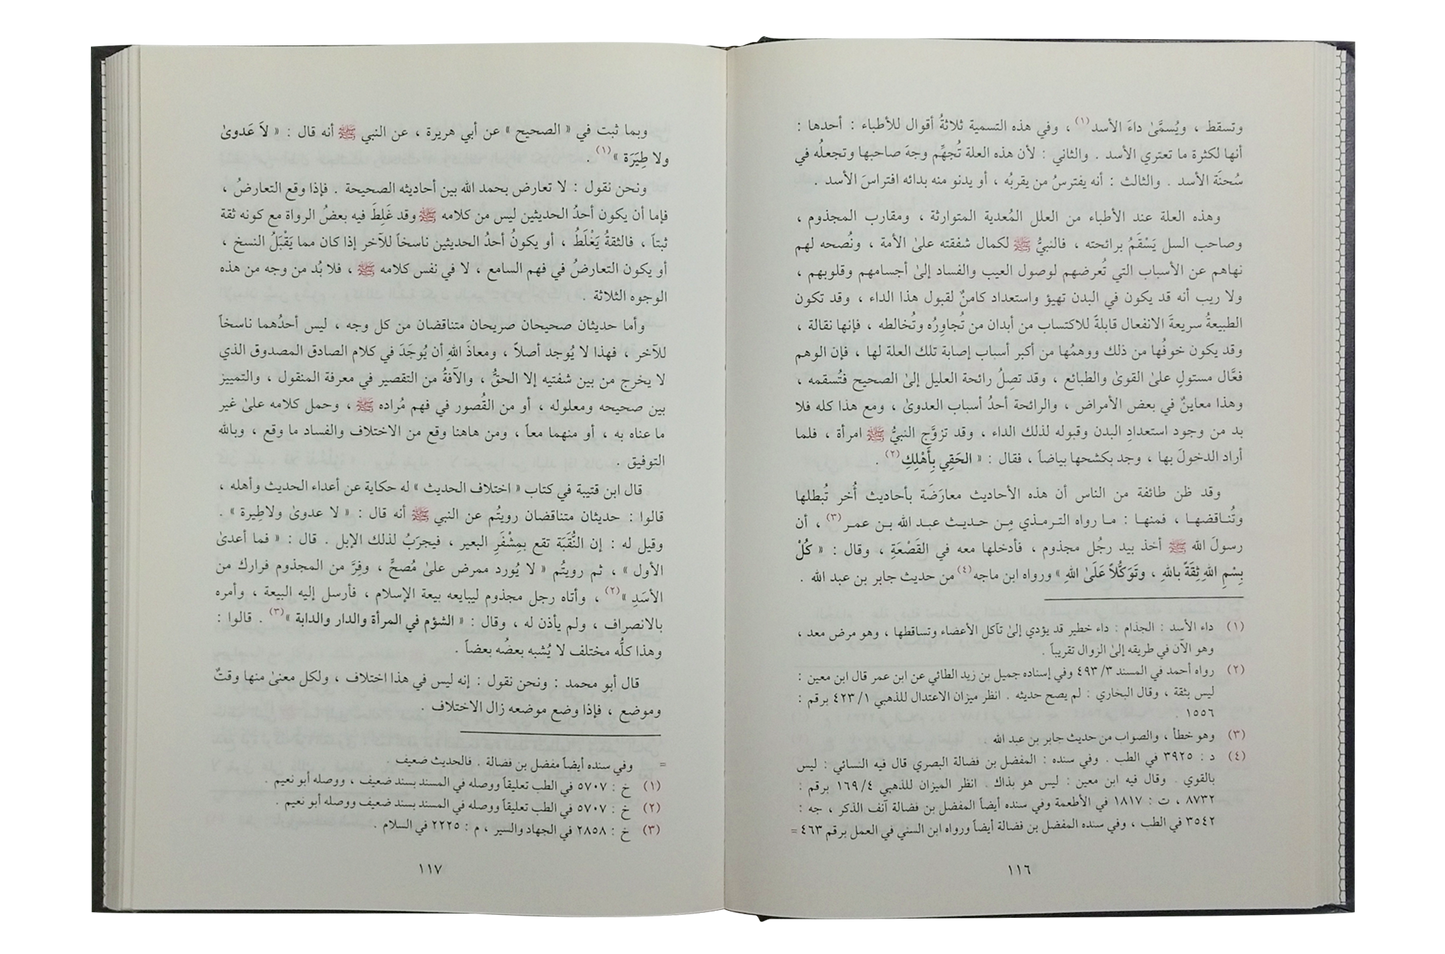 وتسقط ، ويُسمَّىٰ داءَ الأسد(١) ، وفي هذه التسمية ثلاثةُ أقوال للأطباء : أحدها :
أنها لكثرة ما تعتري الأسد . والثاني : لأن هذه العلة تُجهِّم وجهَ صاحبها وتجعلُه في
سُحنَة الأسد . والثالث : أنه يفترسُ من يقربُه ، أو يدنو منه بدائه افتراسَ الأسد .
وهذه العلة عند الأطباء من العلل المُعدية المتوارثة ، ومقارب المجذوم ،
وصاحب السل يَسْقَمُ برائحته ، فالنبيُّ ﷺ لكمال شفقته علىٰ الأمة ، ونُصحه لهم
نهاهم عن الأسباب التي تُعرضهم لوصول العيب والفساد إلىٰ أجسامهم وقلوبهم ،
ولا ريب أنه قد يكون في البدن تهيؤ واستعداد كامنٌ لقبول هذا الداء ، وقد تكون
الطبيعةُ سريعةَ الانفعال قابلةً للاكتساب من أبدان من تُجاوِرُه وتُخالطه ، فإنها نقالة ،
وقد يكون خوفُها من ذلك ووهمُها من أكبر أسباب إصابة تلك العلة لها ، فإن الوهم
فعَّال مستولٍ علىٰ القوىٰ والطبائع ، وقد تصِلُ رائحة العليل إلىٰ الصحيح فتُسقمه ،
وهذا معاينٌ في بعض الأمراض ، والرائحة أحدُ أسباب العدوىٰ ، ومع هذا كله فلا
بد من وجود استعدادِ البدن وقبوله لذلك الداء ، وقد تزوَّج النبيُّ ﷺ امرأة ، فلما
أراد الدخولَ بها ، وجد بكشحها بياضاً ، فقال : « الحَقِي بِأَهْلِكِ»(٢) .
وقد ظن طائفة من الناس أن هذه الأحاديث معارَضَة بأحاديث أُخر تُبطلها
وتُنـاقضهـا ، فمنهـا : مـا رواه التـرمـذي مِـن حـديـث عبـد الله بـن عمـر(٣) ، أن
رسولَ الله ﷺ أخذ بيد رجُل مجذوم ، فأدخلها معه في القَصْعَةِ ، وقال : « كُلْ
بِسْمِ اللهِ ثِقَةً بِاللهِ ، وتَوَكُّلاً عَلَىٰ اللهِ » ورواه ابن ماجه(٤) من حديث جابر بن عبد الله .
(١) داء الأسد : الجذام : داء خطير قد يؤدي إلىٰ تآكل الأعضاء وتساقطها ، وهو مرض معد ،
وهو الآن في طريقه إلىٰ الزوال تقريباً .
(٢) رواه أحمد في المسند ٣/ ٤٩٣ وفي إسناده جميل بن زيد الطائي عن ابن عمر قال ابن معين :
ليس بثقة ، وقال البخاري : لم يصح حديثه . انظر ميزان الاعتدال للذهبي ١/ ٤٢٣ برقم :
١٥٥٦
(٣) وهو خطأ ، والصواب من حديث جابر بن عبد الله
(٤) د : ٣٩٢٥ في الطب . وفي سنده : المفضل بن فضالة البصري قال فيه النسائي : ليس
بالقوي . وقال فيه ابن معين : ليس هو بذاك . انظر الميزان للذهبي ٤/ ١٦٩ برقم :
٨٧٣٢ ، ت : ١٨١٧ في الأطعمة وفي سنده أيضاً المفضل بن فضالة آنف الذكر ، جه :
٣٥٤٢ في الطب ، وفي سنده المفضل بن فضالة أيضاً ورواه ابن السني في العمل برقم ٤٦٣ =
١١٦
وبما ثبت في « الصحيح » عن أبي هريرة ، عن النبي ﷺ أنه قال : « لاَ عَدوىٰ
ولا طِيَرَة »(١) .
ونحن نقول : لا تعارض بحمد الله بين أحاديثه الصحيحة . فإذا وقع التعارضُ ،
فإما أن يكون أحدُ الحديثين ليس من كلامه ﷺ وقد غَلِطَ فيه بعضُ الرواة مع كونه ثقة
ثبتاً ، فالثقةُ يَغْلَطُ ، أو يكونُ أحدُ الحديثين ناسخاً للآخر إذا كان مما يَقْبَلُ النسخ ،
أو يكون التعارضُ في فهم السامع ، لا في نفس كلامه ﷺ ، فلا بُد من وجه من هذه
الوجوه الثلاثة .
وأما حديثان صحيحان صريحان متناقضان من كل وجه ، ليس أحدُهما ناسخاً
للآخر ، فهذا لا يُوجد أصلاً ، ومعاذَ اللهِ أن يُوجَدَ في كلام الصادق المصدوق الذي
لا يخرج من بين شفتيه إلا الحقُّ ، والآفةُ من التقصير في معرفة المنقول ، والتمييز
بين صحيحه ومعلوله ، أو من القُصور في فهم مُراده ﷺ ، وحمل كلامه علىٰ غير
ما عناه به ، أو منهما معاً ، ومن هاهنا وقع من الاختلاف والفساد ما وقع ، وبالله
التوفيق .
قال ابن قتيبة في كتاب « اختلاف الحديث » له حكاية عن أعداء الحديث وأهله ،
قالوا : حديثان متناقضان رويتُم عن النبي ﷺ أنه قال : « لا عدوىٰ ولاطِيرة » .
وقيل له : إن النُّقْبَة تقع بمِشْفَرِ البعير ، فيجرَبُ لذلك الإبل . قال : « فما أعدىٰ
الأول » ، ثم رويتُم « لا يُورد ممرض علىٰ مُصحٍّ ، وفِرَّ من المجذوم فرارك من
الأسَدِ »(٢) ، وأتاه رجل مجذوم ليبايعه بيعة الإسلام ، فأرسل إليه البيعة ، وأمره
بالانصراف ، ولم يأذن له ، وقال : « الشؤم في المرأة والدار والدابة »(٣) . قالوا :
وهذا كلُّه مختلف لا يُشبه بعضُه بعضاً .
قال أبو محمد : ونحن نقول : إنه ليس في هذا اختلاف ، ولكل معنىٰ منها وقتٌ
وموضع ، فإذا وضع موضعه زال الاختلاف .
= وفي سنده أيضاً مفضل بن فضالة . فالحديث ضعيف .
(١) خ : ٥٧٠٧ في الطب تعليقاً ووصله في المسند بسند ضعيف ، ووصله أبو نعيم
(٢) خ : ٥٧٠٧ في الطب تعليقاً ووصله في المسند بسند ضعيف ووصله أبو نعيم .
(٣) خ : ٢٨٥٨ في الجهاد والسير ، م : ٢٢٢٥ في السلام .
١١٧